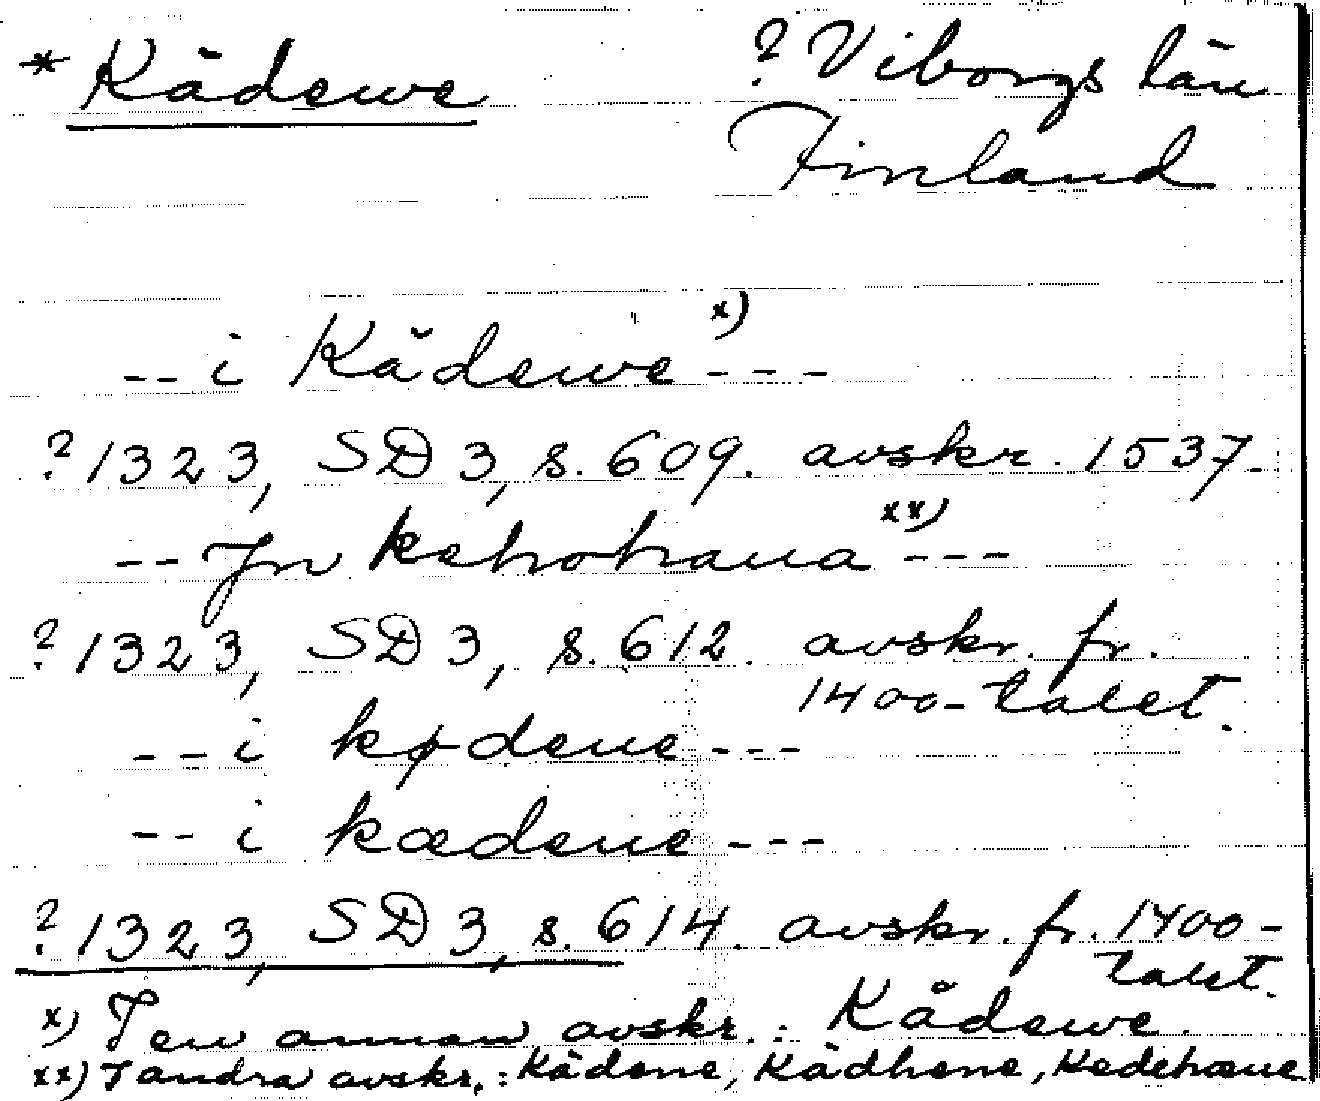 * Kädewe
? Viborgs län
Finland
-- i Kădewe x) ---
? 1323, SD 3, s. 609. avskr. 1537.
-- Jn kehohaua xx) ---
? 1323, SD 3, s. 612. avskr. fr. 1400-talet.
-- i kødene ---
-- i kædene ---
? 1323, SD 3, s. 614. avskr. fr. 1400-talet.
x) I en annan avskr.: Kådewe.
xx) I andra avskr.: Kädene, Kädhene, Kedehæue